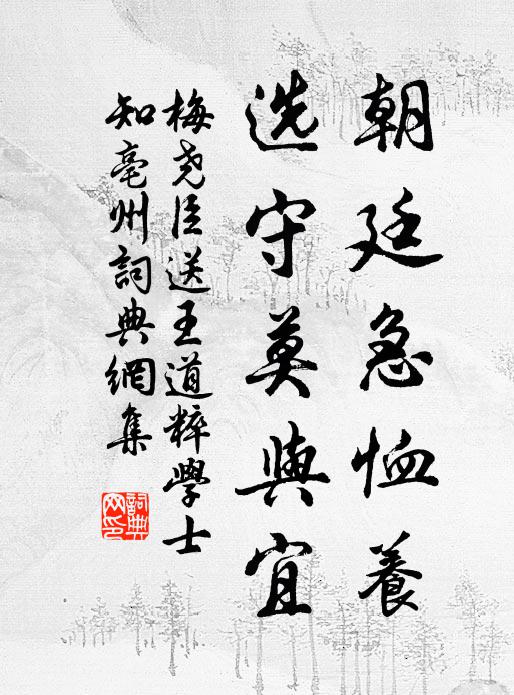 朝廷急恤養
选守莫與宜
梅尧臣送王道粹學士
知亳州詞典網集
詞典
网印